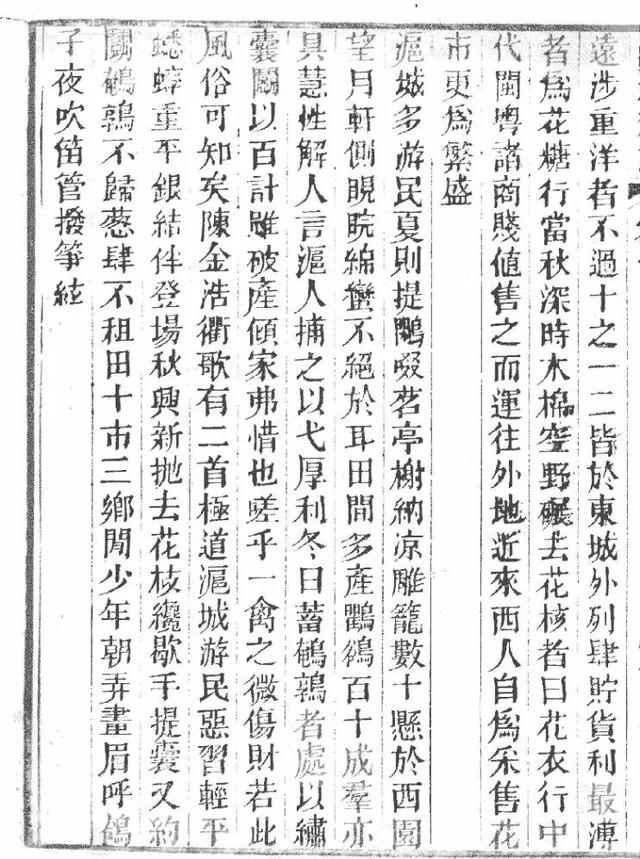 遠涉重洋者不過十之一二皆於東城外列肆貯貨利最溥
者爲花糖行當秋深時木棉空野碾去花核者曰花衣行中
代閩粵諸商賤値售之而運往外地近來西人自爲采售花
市更爲繁盛
滬城多游民夏則提鸜啜茗亭榭納凉雕籠數十懸於西園
望月軒側睍睆綿蠻不絕於耳田間多產鸜鵒百十成羣亦
具慧性解人言滬人捕之以弋厚利冬日蓄鵪鶉者處以繡
囊鬭以百計雖破產傾家弗惜也嗟乎一禽之微傷財若此
風俗可知矣陳金浩衢歌有二首極道滬城游民惡習輕平
蟋蟀重平銀結伴登場秋興新抛去花枝纔歇手提囊又約
鬭鵪鶉不歸葱肆不租田十市三鄉閒少年朝弄畫眉呼鴿
子夜吹笛管撥箏絃